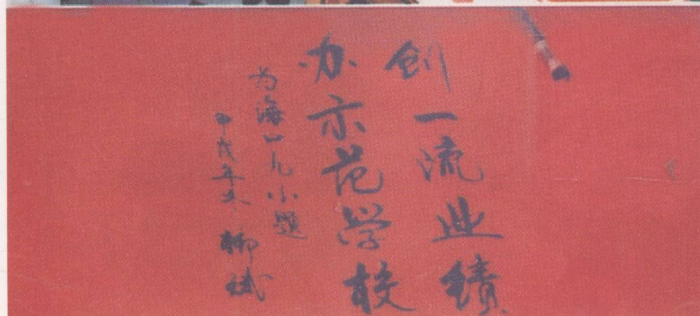 创一流业绩
办示范学校
为海口九小题
甲戌年冬 柳斌